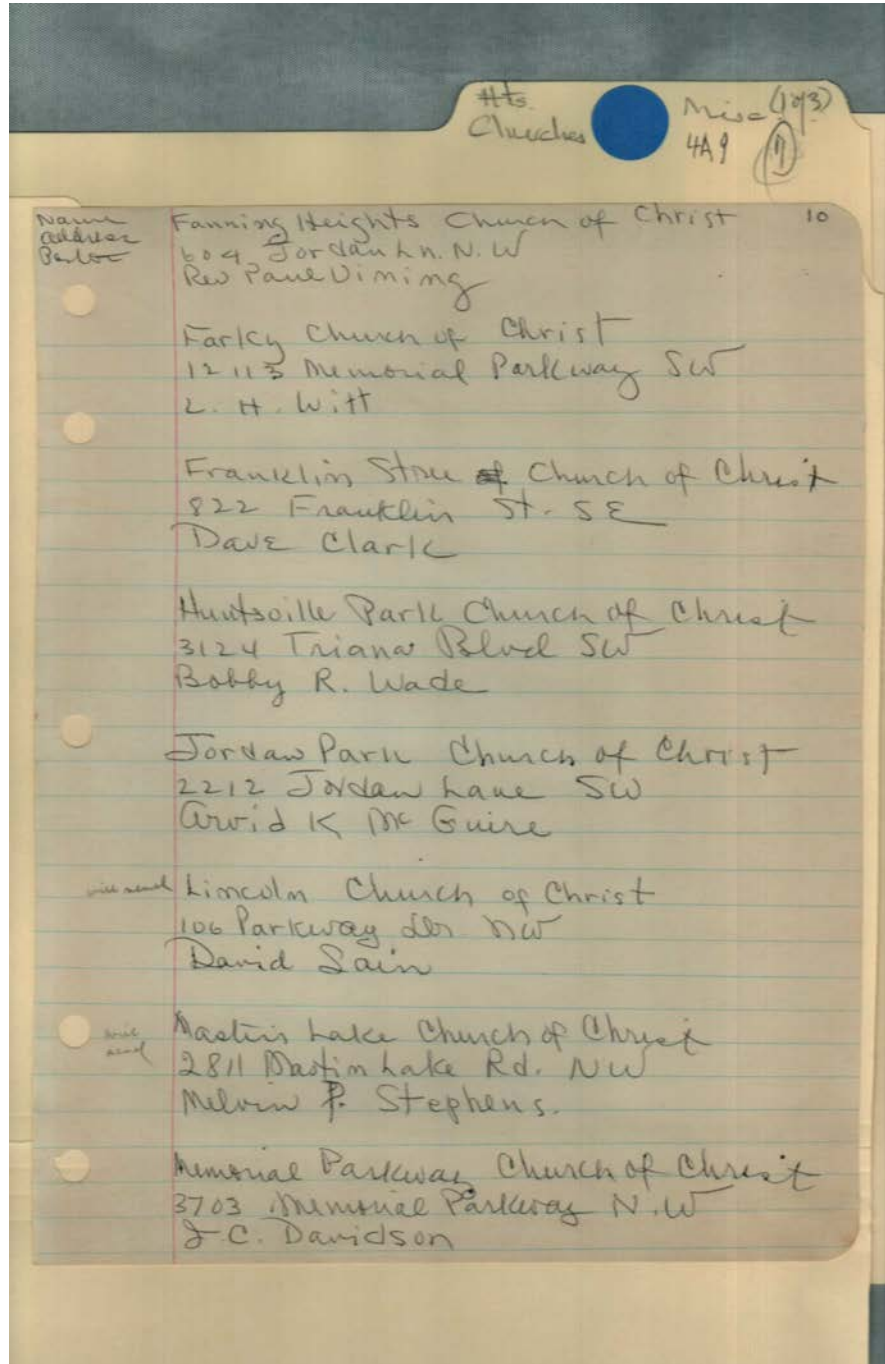 Hts.
Churches
Misc (1 of 3)
4A9
Name
address
Fanning Heights Church of Christ
10
604 Jordan Ln. N.W
Rev Paul Vining
Farley Church of Christ
12113 Memorial Parkway SW
L. H. Witt
Franklin Stree Church of Christ
822 Franklin St. SE
Dave Clark
Huntsville Park Church of Christ
3124 Triana Blvd SW
Bobby R. Wade
Jordan Park Church of Christ
2212 Jordan Lane SW
Arvid K McGuire
will send
Lincoln Church of Christ
106 Parkway Dr NW
David Sain
will
send
Mastin Lake Church of Christ
2811 Mastin Lake Rd. NW
Melvin P. Stephens.
Memorial Parkway Church of Christ
3703 Memorial Parkway N.W
J-C. Davidson